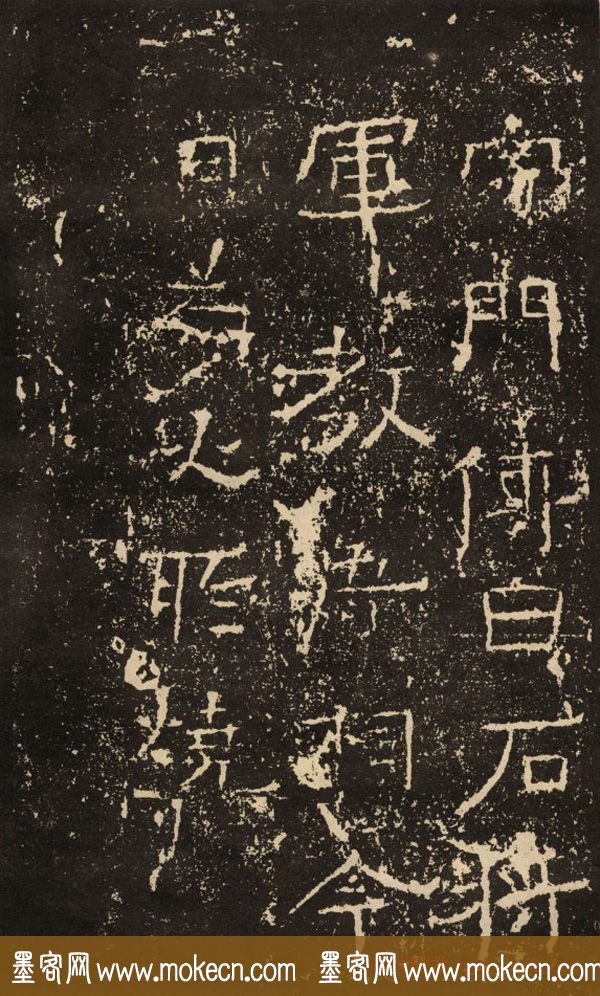 門傅白石將
軍教祠今
日為火所燒
墨客网 www.mokecn.com 墨客网 www.mokecn.com